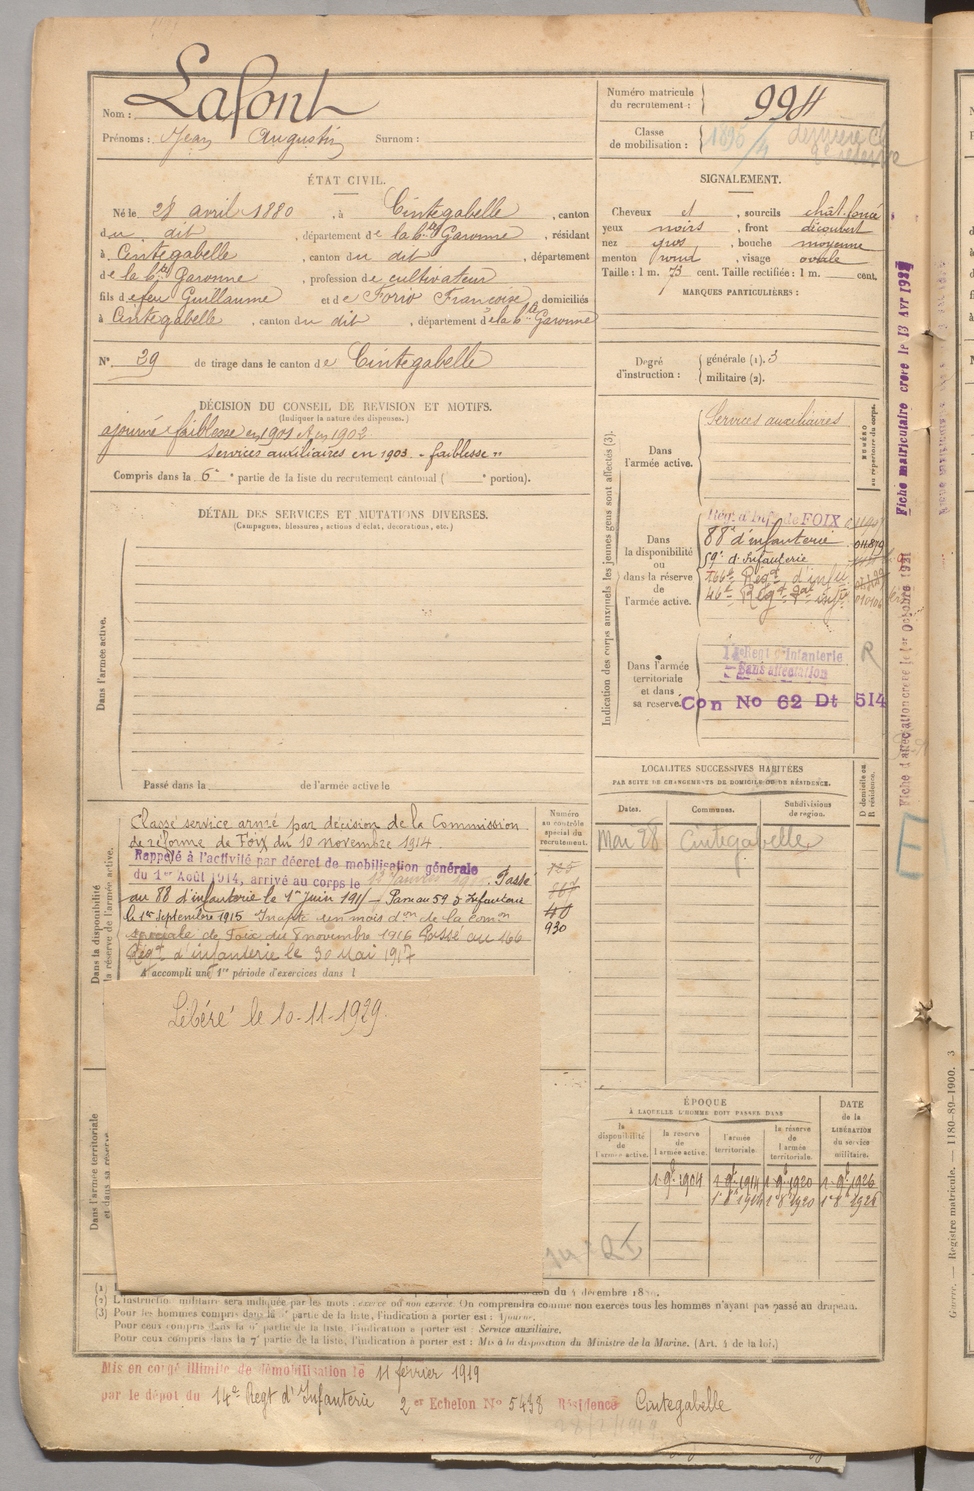 Nom : Lafont
Prénoms : Jean Augustin Surnom :
ÉTAT CIVIL.
Né le 28 avril 1880, à Cintegabelle, canton
du dit, département de la hte Garonne, résidant
à Cintegabelle, canton du dit, département
de la hte Garonne, profession de cultivateur
fils de feu Guillaume et de Françoise, domiciliés
à Cintegabelle, canton du dit, département de la hte Garonne
N° 39 de tirage dans le canton de Cintegabelle
DÉCISION DU CONSEIL DE REVISION ET MOTIFS.
(Indiquer la nature des dispenses.)
ajourné faiblesse en 1901 et en 1902
Services auxiliaires en 1903. "faiblesse"
Compris dans la 6e partie de la liste du recrutement cantonal ( e portion).
DÉTAIL DES SERVICES ET MUTATIONS DIVERSES.
(Campagnes, blessures, actions d'éclat, décorations, etc.)
Dans l'armée active.
Passé dans la de l'armée active le
Dans la disponibilité
la réserve de l'armée active.
Classé service armé par décision de la Commission
de réforme de Foix du 10 novembre 1914.
Rappelé à l'activité par décret de mobilisation générale
du 1er Août 1914, arrivé au corps le Passé
au 88 d'infanterie le 1er juin 1915 - Passé au 59 d'Infanterie
le 1er Septembre 1915 Inapte un mois don de la comon
spéciale de Foix du 8 novembre 1916 Passé au 166
Régt d'infanterie le 30 mai 1917
A accompli une 1re période d'exercices dans l
Numéro
au contrôle
spécial du
recrutement.
930
Libéré le 10-11-1929.
Dans l'armée territoriale
et dans sa réserve
Numéro matricule
du recrutement : 994
Classe
de mobilisation : dernière Cl
SIGNALEMENT.
Cheveux et, sourcils chât. foncé
yeux noirs, front découvert
nez gros, bouche moyenne
menton rond, visage ovale
Taille : 1 m. 73 cent. Taille rectifiée : 1 m. cent.
MARQUES PARTICULIÈRES :
Degré
d'instruction :
générale (1). 3
militaire (2).
Indication des corps auxquels les jeunes gens sont affectés (3).
NUMÉRO
au répertoire du corps.
Dans
l'armée active.
Services auxiliaires
Dans
la disponibilité
ou
dans la réserve
de
l'armée active.
Régt d'Infie de FOIX
88e d'infanterie
59e d'Infanterie
166e Régt d'infie
46e Régt d'infie
Dans l'armée
territoriale
et dans
sa réserve.
14e Regt d'Infanterie R
Sans affectation
Con No 62 Dt 514
LOCALITÉS SUCCESSIVES HABITÉES
PAR SUITE DE CHANGEMENTS DE DOMICILE OU DE RÉSIDENCE.
D domicile ou
R résidence.
Dates. Communes. Subdivisions
de région.
Mai 28 Cintegabelle
ÉPOQUE
À LAQUELLE L'HOMME DOIT PASSER DANS
la
disponibilité
de
l'armée active.
la réserve
de
l'armée active.
l'armée
territoriale.
la réserve
de
l'armée
territoriale.
DATE
de la
LIBÉRATION
du service
militaire.
1 9bre 1904 1 9bre 1914 1 9bre 1920 1 9bre 1926
1er 8bre 1914 1er 8bre 1920 1er 8bre 1926
du 4 décembre
(2) L'instruction militaire sera indiquée par les mots : exercé ou non exercé. On comprendra comme non exercés tous les hommes n'ayant pas passé au drapeau.
(3) Pour les hommes compris dans la 5e partie de la liste, l'indication à porter est : Ajourné.
Pour ceux compris dans la 6e partie de la liste, l'indication à porter est : Service auxiliaire.
Pour ceux compris dans la 7e partie de la liste, l'indication à porter est : Mis à la disposition du Ministre de la Marine. (Art. 4 de la loi.)
Mis en congé illimité de démobilisation le 11 février 1919
par le dépôt du 14e Regt d'Infanterie 2er Echelon No 5438 Résidence Cintegabelle
Fiche matriculaire créée le 13 Avr
Fiche d'affectation créée le 1er Octobre 1921
Guerre. — Registre matricule. — 1180-89-1900. 3